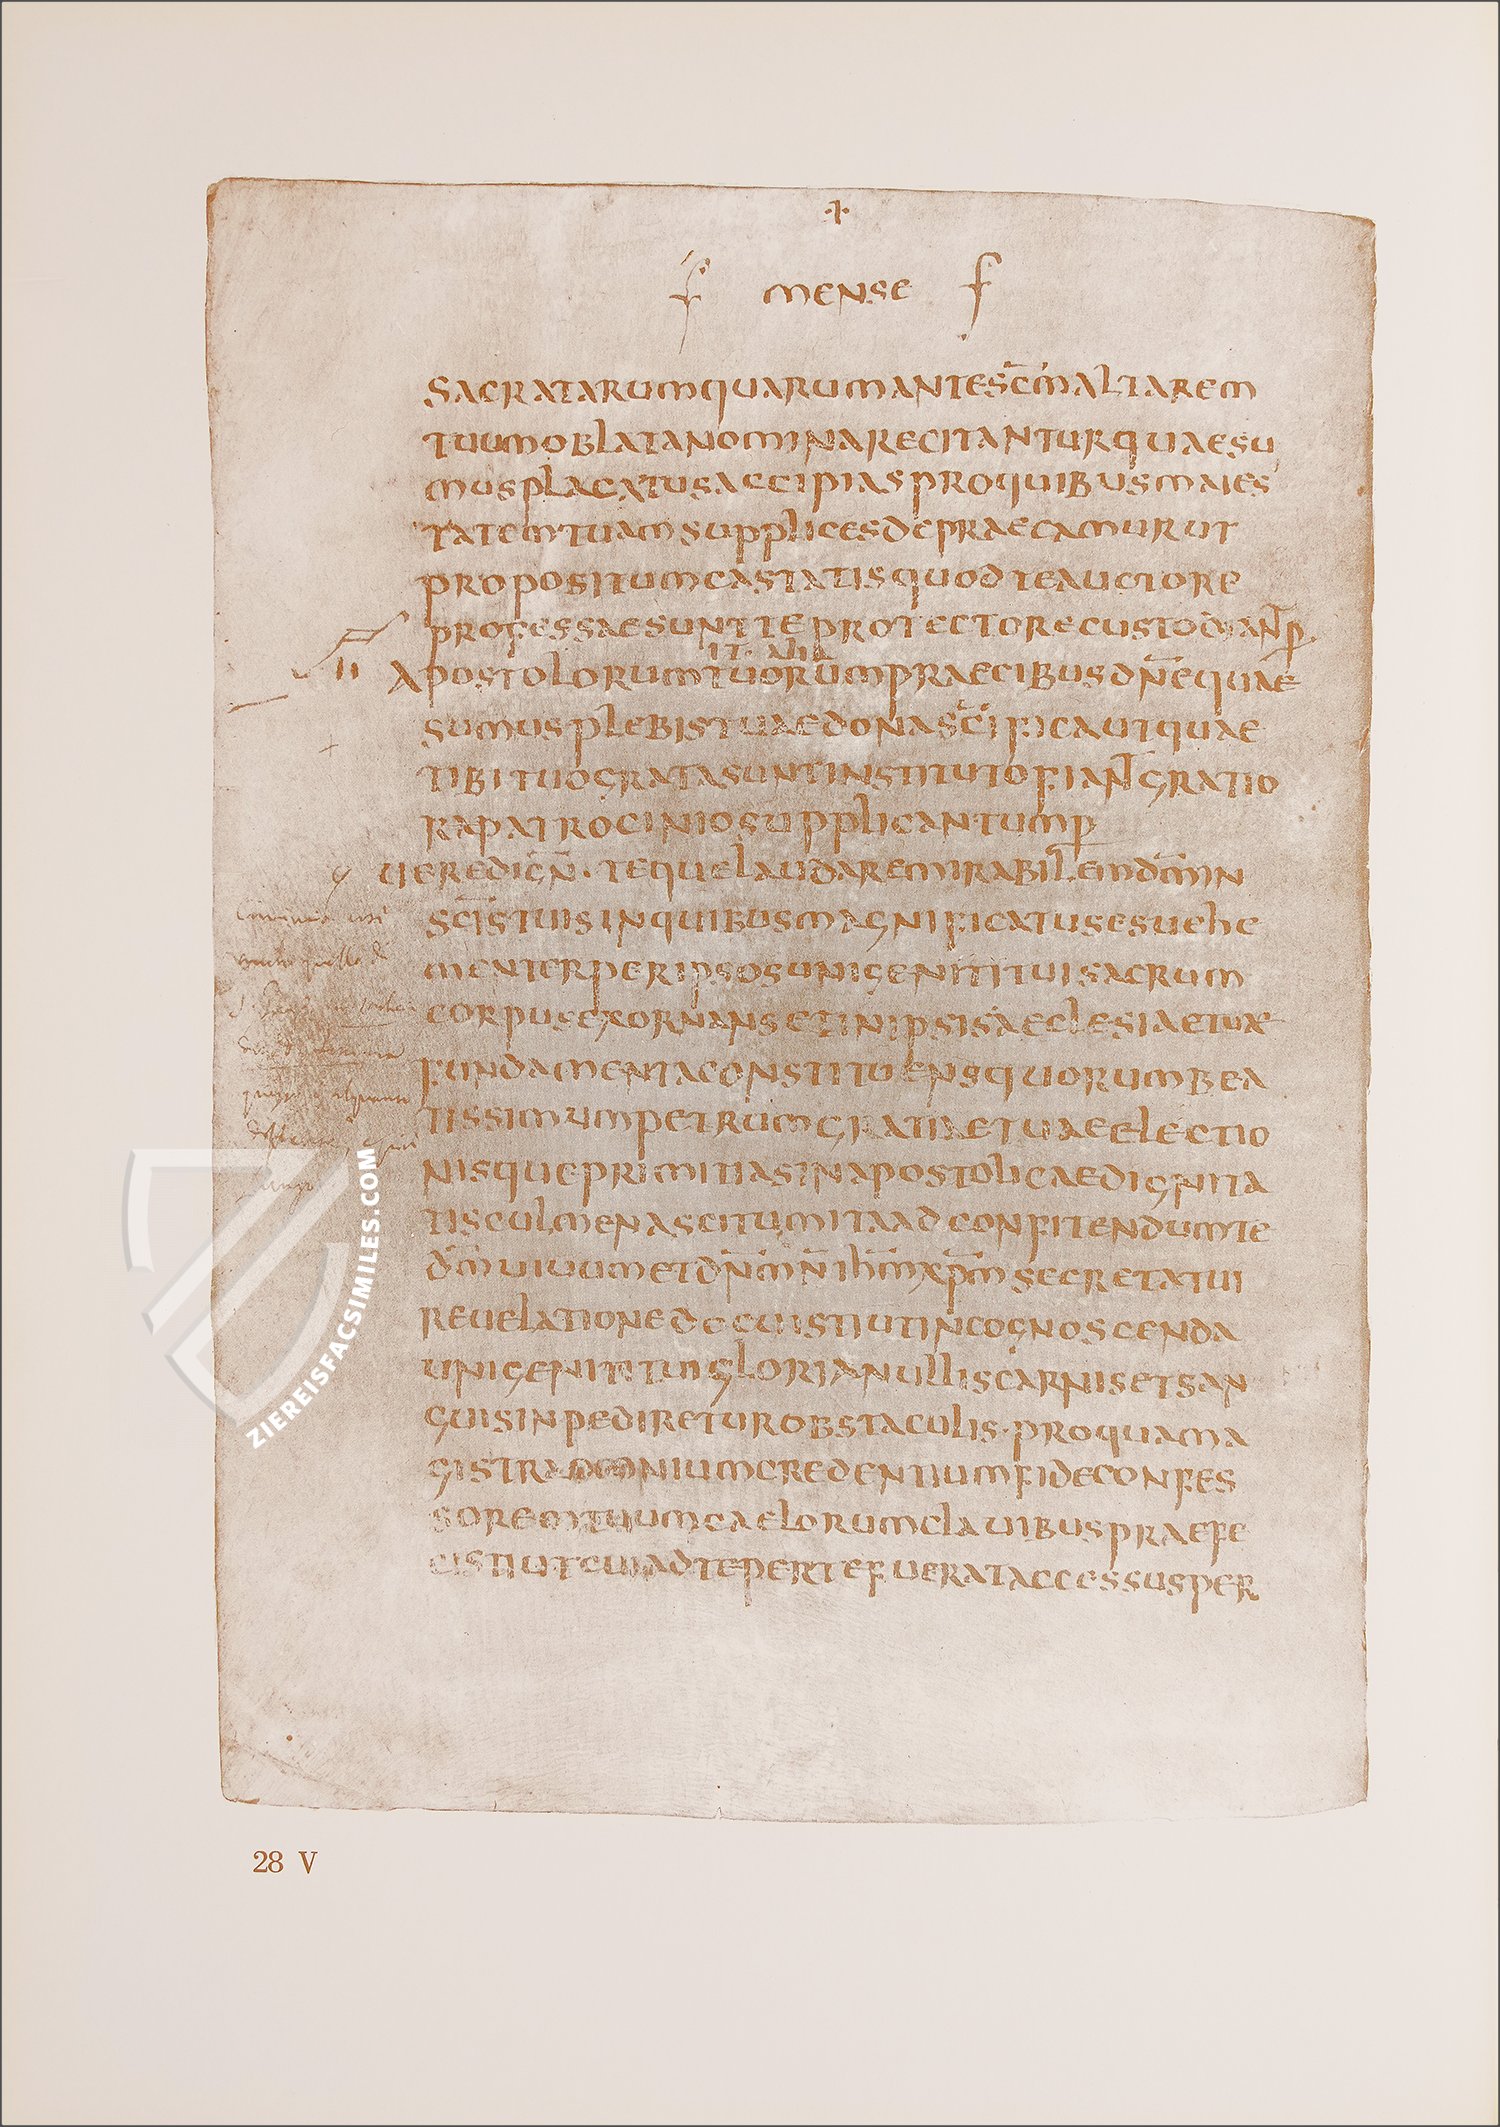 MENSE
SACRATARUMQUARUMANTESC̄MALTAREM
TUUMOBLATANOMINARECITANTURQUAESU
MUSPLACATUSACCIPIASPROQUIBUSMAIES
TATEMTUAMSUPPLICESDEPRAECAMURUT
PROPOSITUMCASTATISQUODTEAUCTORE
PROFESSAESUNTTEPROTECTORECUSTODIAN̄P
IT· ALIA
II APOSTOLORUMTUORUMPRAECIBUSDN̄EQUAE
SUMUSPLEBISTUAEDONASC̄IFICAUTQUAE
TIBITUOGRATASUNTINSTITUTOFIAN̄GRATIO
RAPATROCINIOSUPPLICANTUMP
UEREDIGN̄·TEQUELAUDAREMIRABILEMDM̄IN
SC̄ISTUISINQUIBUSMAGNIFICATUSESUEHE
MENTERPERIPSOSUNIGENITITUISACRUM
CORPUSEXORNANSETINIPSISAECLESIAETUAE
FUNDAMENTACONSTITUENSQUORUMBEA
TISSIMUMPETRUMGRATIAETUAEELECTIO
NISQUEPRIMITIASINAPOSTOLICAEDIGNITA
TISCULMENASCITUMITAADCONFITENDUMTE
DM̄UIUUMETDN̄MN̄IHM̄XPM̄SECRETATUI
REUELATIONEDOCUISTIUTINCOGNOSCENDA
UNIGENITITUIGLORIANULLISCARNISETSAN
GUISINPEDIRETUROBSTACULIS·PROQUAMA
GISTRAOMNIUMCREDENTIUMFIDECONFES
SOREMTUUMCAELORUMCLAUIBUSPRAEFE
CISTIUTCUIADTEPERTEFUERATACCESSUSPER
28 V
ZIEREISFACSIMILES.COM